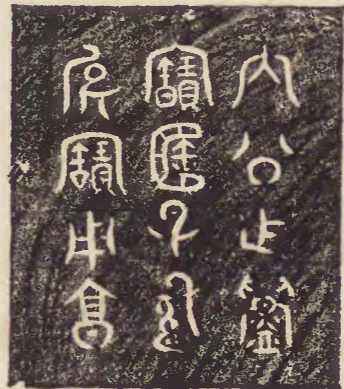 內公乍鑄
寶簠子孫
永寶用享